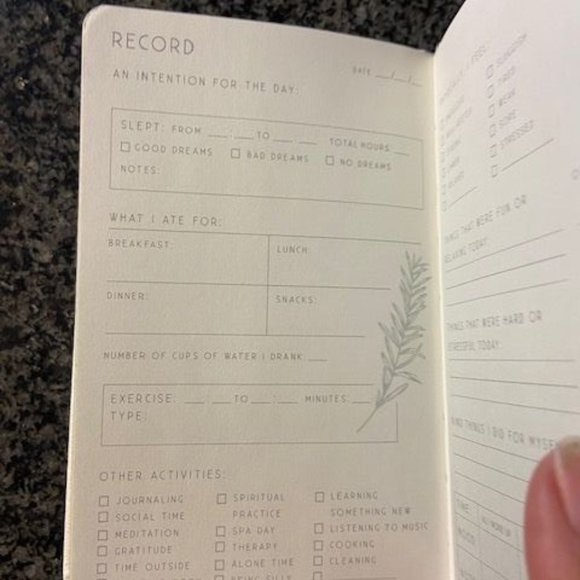 RECORD
DATE __/__/__
AN INTENTION FOR THE DAY:
SLEPT: FROM __:__ TO __:__ TOTAL HOURS: __
☐ GOOD DREAMS ☐ BAD DREAMS ☐ NO DREAMS
NOTES:
WHAT I ATE FOR:
BREAKFAST: LUNCH:
DINNER: SNACKS:
NUMBER OF CUPS OF WATER I DRANK: ___
EXERCISE: __:__ TO __:__ MINUTES: ___
TYPE:
OTHER ACTIVITIES:
☐ JOURNALING ☐ SPIRITUAL PRACTICE ☐ LEARNING SOMETHING NEW
☐ SOCIAL TIME
☐ MEDITATION ☐ SPA DAY ☐ LISTENING TO MUSIC
☐ GRATITUDE ☐ THERAPY ☐ COOKING
☐ TIME OUTSIDE ☐ ALONE TIME ☐ CLEANING
BEING SILLY
☐ SLUGGISH
☐ TIRED
☐ WEAK
☐ SORE
☐ STRESSED
THINGS THAT WERE FUN OR
RELAXING TODAY:
THINGS THAT WERE HARD OR
STRESSFUL TODAY:
KIND THINGS I DID FOR MYSELF
TIME
MOOD